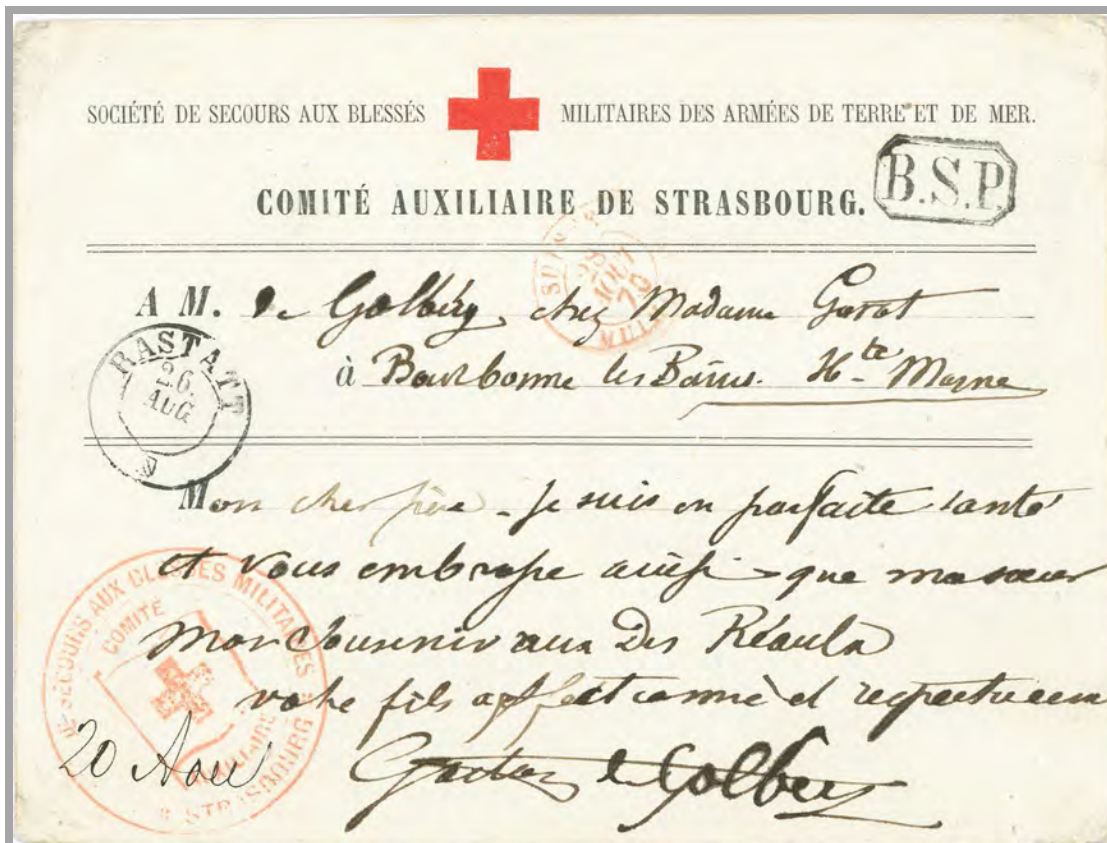 SOCIÉTÉ DE SECOURS AUX BLESSÉS MILITAIRES DES ARMÉES DE TERRE ET DE MER.
B.S.P.
COMITÉ AUXILIAIRE DE STRASBOURG.
28 AOUT 70
A M. de Golbéry chez Madame Garot
à Bourbonne les Bains. Hte Marne
RASTATT
26.
AUG
Mon cher père - je suis en parfaite santé
et vous embrasse ainsi que ma soeur
Mon Souvenir aux Des
votre fils affectionné et respectueux
Gaston de Golbery
20 Aou
SECOURS AUX BLESSÉS MILITAIRES
COMITÉ AUXILIAIRE
STRASBOURG